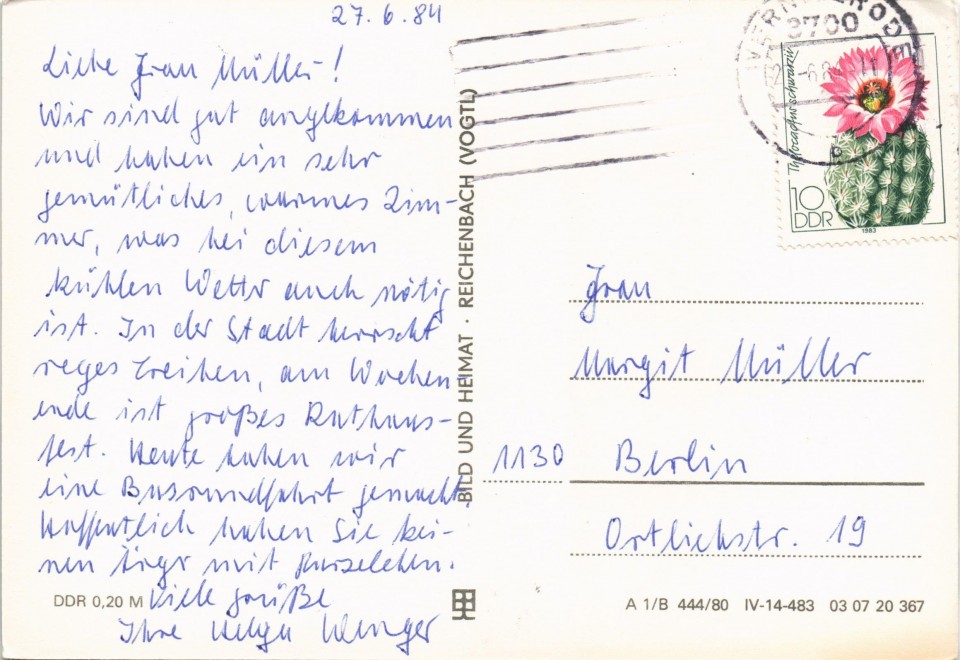 27. 6. 84
Liebe Frau Müller!
Wir sind gut angekommen
und haben ein sehr
gemütliches, warmes Zim-
mer, was bei diesem
kühlen Wetter auch nötig
ist. In der Stadt herrscht
reges Treiben, am Wochen-
ende ist großes Rathaus-
fest. Heute haben wir
eine Busrundfahrt gemacht.
Hoffentlich haben Sie kei-
nen Ärger mit
Viele Grüße
Ihre Helga
DDR 0,20 M
BILD UND HEIMAT · REICHENBACH (VOGTL)
WERNIGERODE
3700
10
DDR
1983
Frau
Margit Müller
1130 Berlin
Ortliebstr. 19
A 1/B 444/80 IV-14-483 03 07 20 367